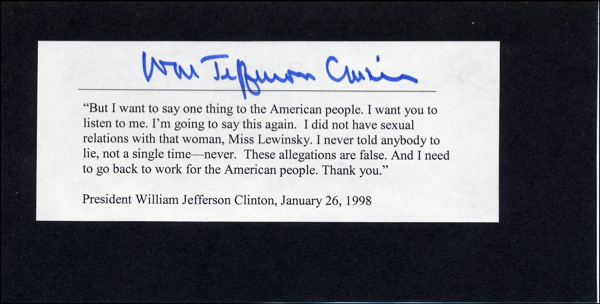 Wm Jefferson Clinton
“But I want to say one thing to the American people. I want you to
listen to me. I’m going to say this again.  I did not have sexual
relations with that woman, Miss Lewinsky. I never told anybody to
lie, not a single time—never.  These allegations are false. And I need
to go back to work for the American people. Thank you.”
President William Jefferson Clinton, January 26, 1998